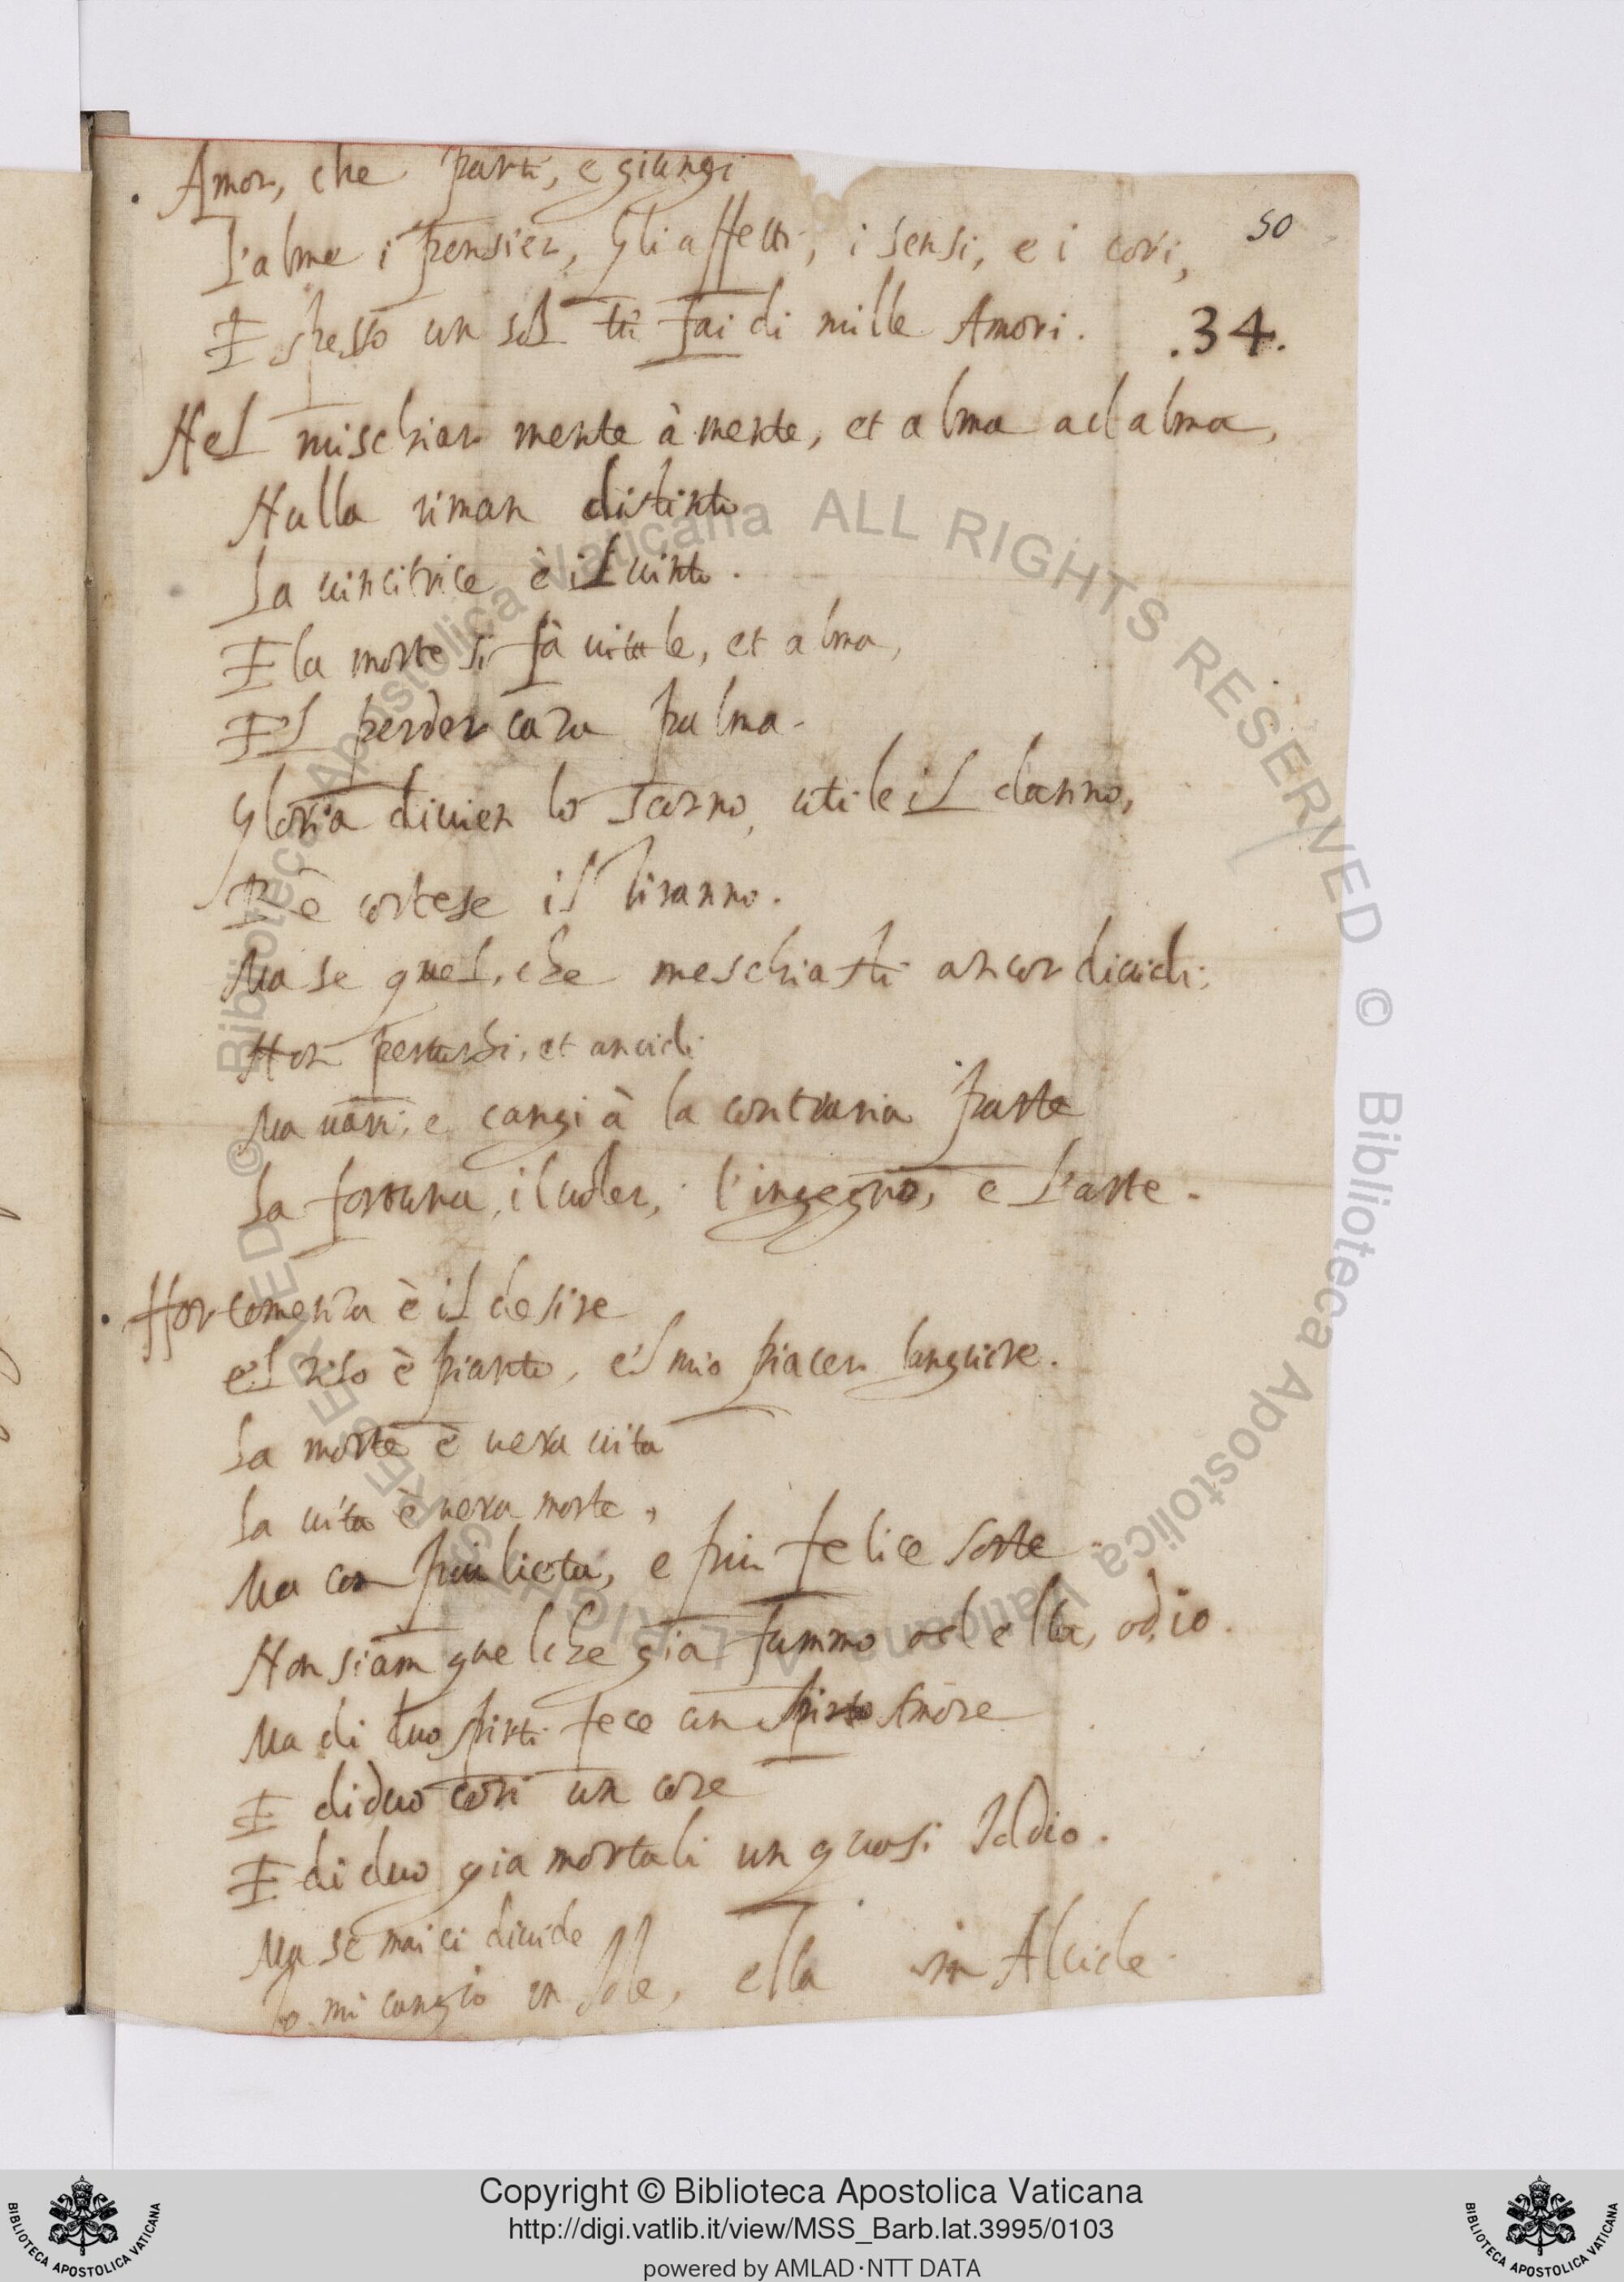 Amor, che parti, e giungi
50
L'alme i pensier, gli affetti, i sensi, e i cori,
E spesso un sol tu fai di mille Amori.
.34.
Nel mischiar mente à mente, et alma ad alma,
Nulla riman distinto
La vincitrice è il vinto.
E la morte si fà vitale, et alma,
E'l perder cara palma.
Gloria divien lo scorno, utile il danno,
E è cortese il Tiranno.
Ma se quel, che meschiasti ancor dividi;
Non perturbi, et ancidi
Ma varii, e cangi à la contraria parte
La fortuna, il voler, l'ingegno, e l'arte.
Hor comenza è il desire
e'l riso è pianto, e'l mio piacer languire.
La morte è vera vita
La vita è vera morte,
Ma con piu lieta, e piu felice sorte
Non siam quel che gia fummo od ella, od io.
Ma di duo spirti fece un spirto Amore
E di duo cori un core
E di duo gia mortali un quasi Iddio.
Ma se mai ci divide
Io mi cangio in Iole, ella in Alcide
© Biblioteca Apostolica Vaticana ALL RIGHTS RESERVED © Biblioteca Apostolica Vaticana ALL RIGHTS RESERVED
BIBLIOTECA APOSTOLICA VATICANA
Copyright © Biblioteca Apostolica Vaticana
http://digi.vatlib.it/view/MSS_Barb.lat.3995/0103
powered by AMLAD·NTT DATA
BIBLIOTECA APOSTOLICA VATICANA